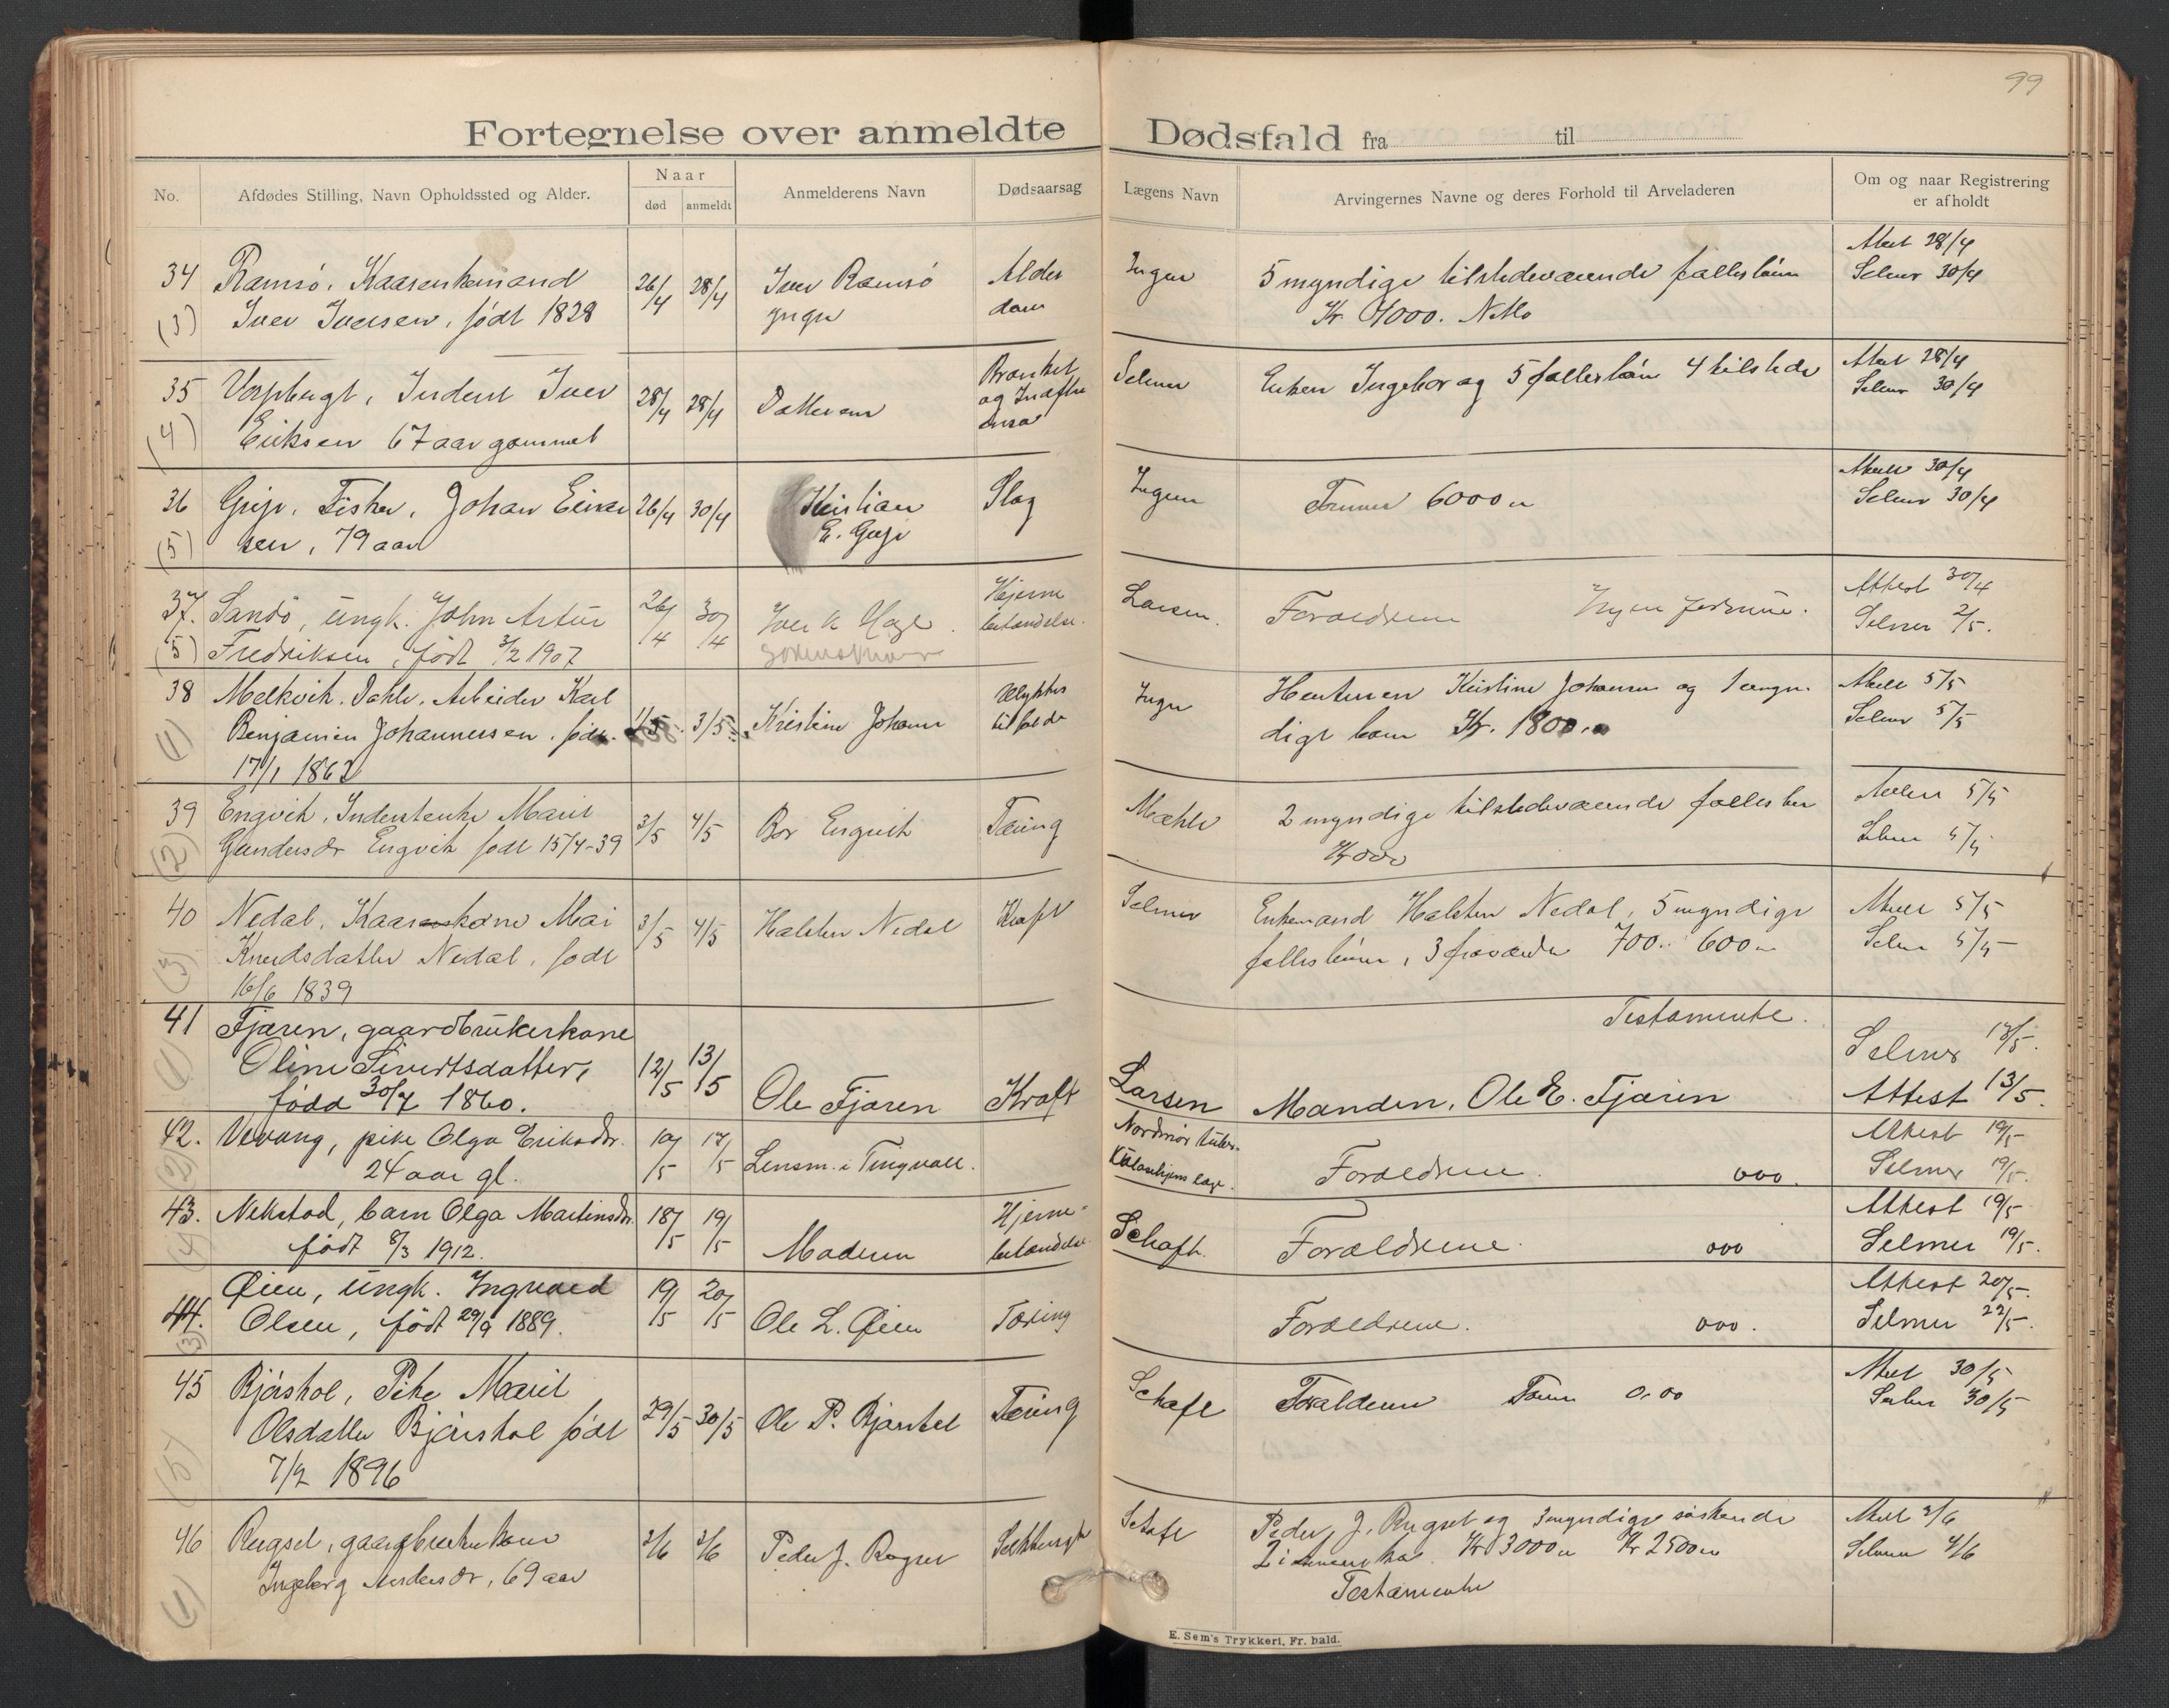 99
Fortegnelse over anmeldte Dødsfald fra til
No.
Afdødes Stilling, Navn Opholdssted og Alder.
Naar
død
anmeldt
Anmelderens Navn
Dødsaarsag
Lægens Navn
Arvingernes Navne og deres Forhold til Arveladeren
Om og naar Registrering
er afholdt
34
(3)
Ramsø, Kaarenkemand
Iver Iversen, født 1828
26/4
28/4
Iver Ramsø
yngre
Alder
dom
Ingen
5 myndige tilstedeværende fællesbørn
Kr. 4000. Netto
Attest 28/4
Selmer 30/4
35
(4)
Inderst Iver
Eriksen 67 aar gammel
28/4
28/4
Datteren
Bronkit
og
Selmer
Enken Ingebor og 5 fællesbørn 4 tilstede
Attest 28/4
Selmer 30/4
36
(5)
Grip, Fisker, Johan Einar
sen, 79 aar
26/4
30/4
Kristian
E. Grip
Slag
Ingen
Formue 6000 "
Attest 30/4
Selmer 30/4
37.
(5)
Sandø, ungk. John Artur
Fredriksen, født 3/2 1907
26/4
30/4
Iver K Hage
Hjerne
betændelse.
Larsen.
Forældrene Ingen formue.
Attest 30/4
Selmer 2/5.
38
(1)
Melkvik. Dahle. Arbeider Karl
Benjamin Johannessen. født
17/1 1862
1/5
3/5
Kristine Johans
Ulykkes
tilfælde
Ingen
Kristine Johansen og 1 umyn-
digt barn Kr. 1800.
Attest 5/5
Selmer 5/5
39
(2)
Engvik, Inderstenke Marit
Gundersdr Engvik født 15/4-39
3/5
4/5
Bor Engvik
Tæring
Mæhle
2 myndige tilstedeværende fælles børn
Kr 000
Attest 5/5
Selmer 5/5
40
(3)
Nedal, Kaarkone Mari
Knudsdatter Nedal, født
16/6 1839
3/5
4/5
Halsten Nedal
Kræft
Selmer
Enkemand Halsten Nedal, 5 myndige
fællesbørn, 3 fraværende 700.. 600 "
Attest 5/5
Selmer 5/5
41
(1)
Fjæren, gaardbrukerkone
Oline Sivertsdatter,
født 30/7 1860.
12/5
13/5
Ole Fjæren
Kræft
Larsen
Testamente.
Manden, Ole E. Fjæren
Selmer 13/5.
Attest 13/5.
42.
(2)
Vevang, pike Olga Eriksdr.
24 aar gl.
10/5
17/5
Lensm. i Tingvoll.
Nordmør tuber-
kulosehjems læge.
Forældrene. 000.
Attest 19/5
Selmer 19/5.
43.
(4)
Nekstad, barn Olga Martinsdr.
født 8/3 1912.
18/5
19/5
Moderen
Hjerne-
betændelse.
Schaft.
Forældrene. 000
Attest 19/5
Selmer 19/5.
44.
(3)
Øien, ungk. Ingvald
Olsen, født 29/9 1889.
19/5
20/5
Ole L. Øien
Tæring
Forældrene. 000.
Attest 20/5.
Selmer 22/5.
45
(5)
Bjørshol, Pike Marit
Olsdatter Bjørshol født
7/2 1896
29/5
30/5
Ole P. Bjørshol
Tæring
Schaft
Forældrene Form 0.00
Attest 30/5
Selmer 30/5
46
(1)
Rugset, gaardbrukerkone
Ingeborg Andersdr, 69 aar
2/6
3/6
Peder J. Rugset
Schaft
Peder J. Rugset og 3 myndige søskende
2 i Amerika Kr 3000 " Kr 2500 "
Testamente
Attest 3/6
Selmer 4/6
E. Sem's Trykkeri, Fr. hald.